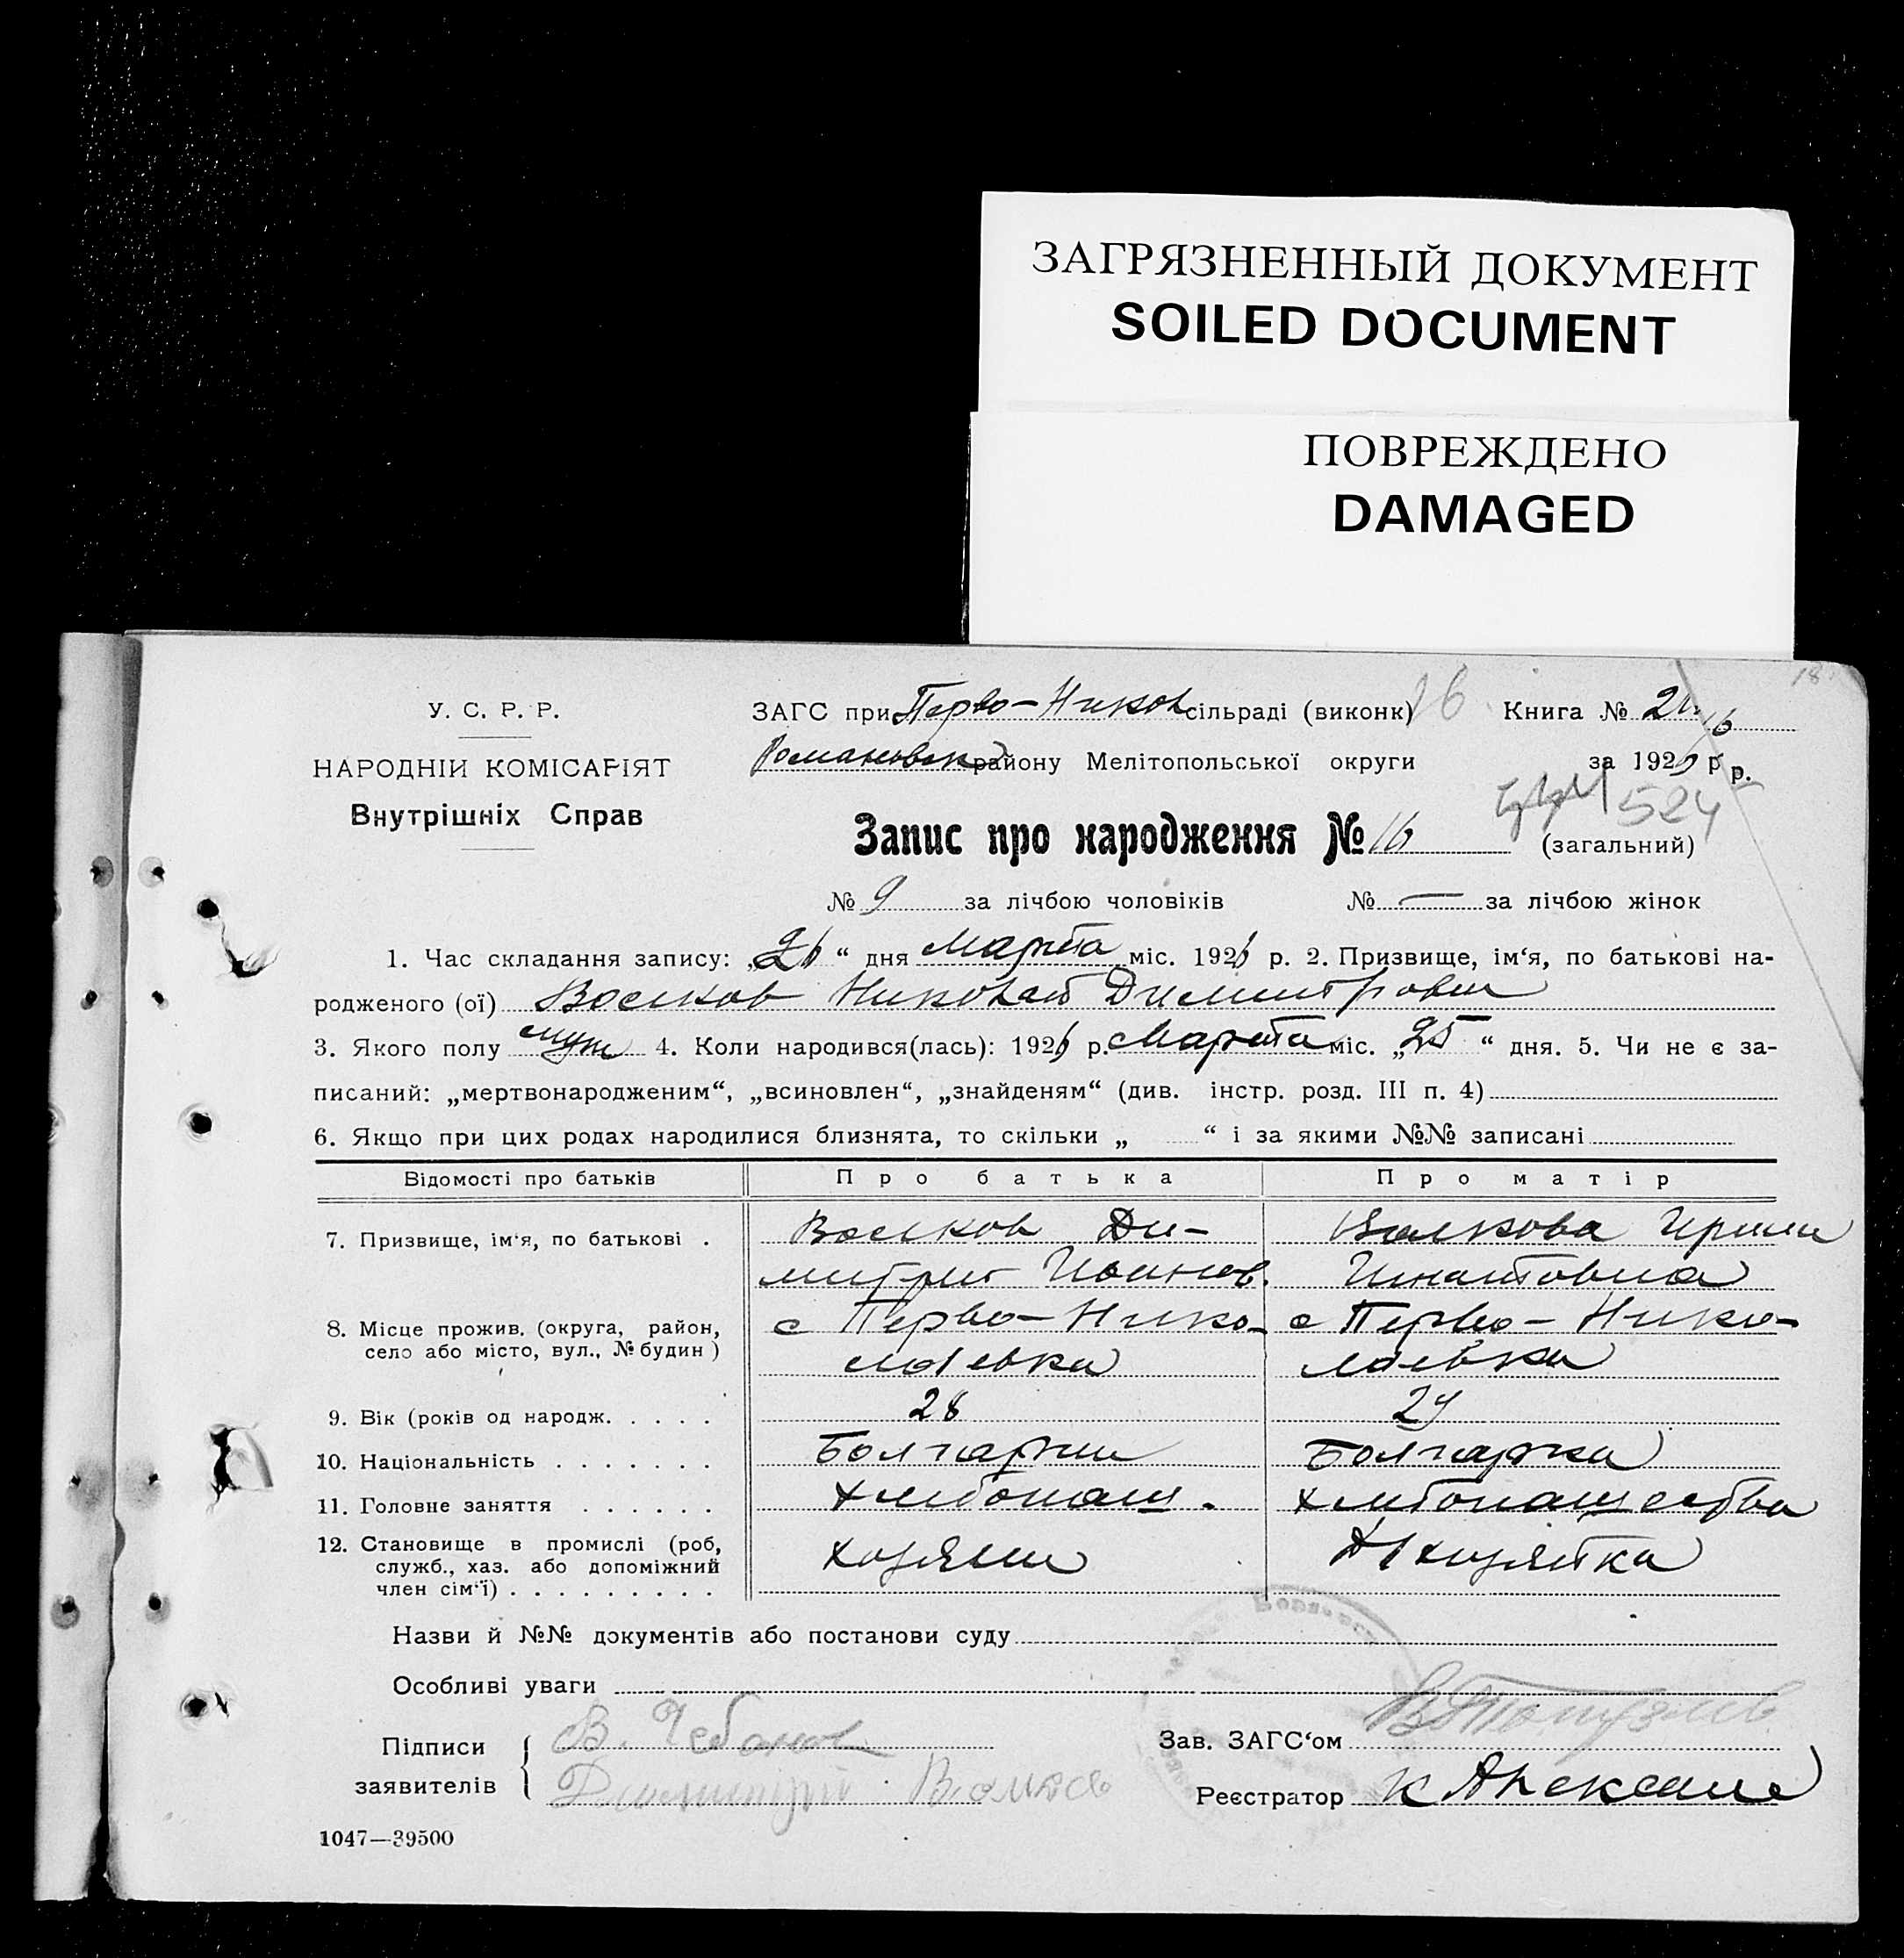 ЗАГРЯЗНЕННЫЙ ДОКУМЕНТ
SOILED DOCUMENT
ПОВРЕЖДЕНО
DAMAGED
18
У. С. Р. Р.
НАРОДНІИ КОМІСАРІЯТ
Внутрішніх Справ
ЗАГС при Перво-Никол сільраді (виконк) 16 Книга № 2
16
Романовск району Мелітопольської округи за 1926 р р.
524
Запис про народження № 16 (загальний)
№ 9 за лічбою чоловіків № — за лічбою жінок
1. Час складання запису: „26“ дня Марта міс. 1926 р. 2. Призвище, ім‘я, по батькові на-
родженого (ої) Волков Николай Димитрович
3. Якого полу муж 4. Коли народився(лась): 1926 р. Марта міс. „25“ дня. 5. Чи не є за-
писаний: „мертвонародженим“, „всиновлен“, „знайденям“ (див. інстр. розд. III п. 4)
6. Якщо при цих родах народилися близнята, то скільки „ “ і за якими №№ записані
Відомості про батьків Про батька Про матір
7. Призвище, ім‘я, по батькові . Волков Ди- Волкова Ирина
митрий Иоанов. Игнатовна
8. Місце прожив. (округа, район, с Перво-Нико- с Перво-Нико-
село або місто, вул., № будин) лаевка лаевка
9. Вік (років од народж. . . . . 28 29
10. Національність . . . . . . . Болгарин Болгарка
11. Головне заняття . . . . . . Хлебопаш. Хлебопашества
12. Становище в промислі (роб,
служб., хаз. або допоміжний Хозяин Хозяйка
член сім‘ї) . . . . . . . . .
Назви й №№ документів або постанови суду
Особливі уваги
Підписи В. Чебанов Зав. ЗАГС‘ом
заявителів Димитрій Волков Реєстратор
1047—39500